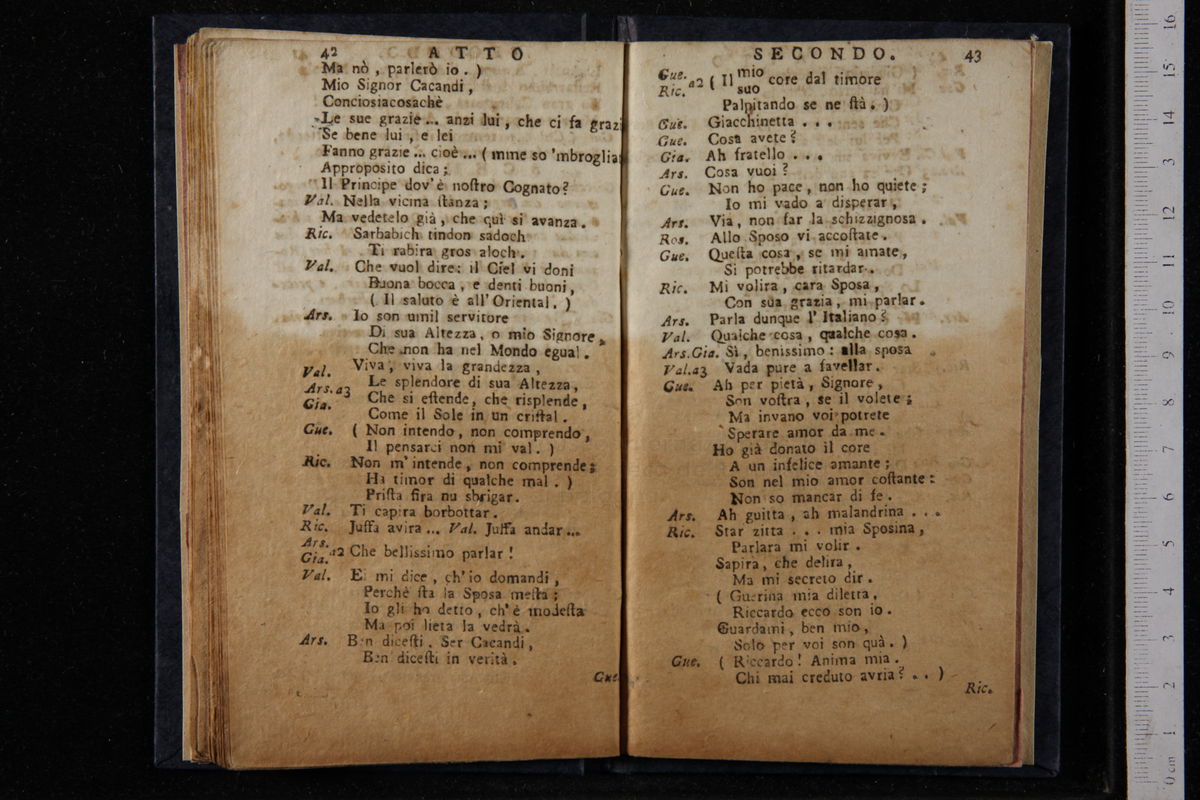 42 ATTO
Ma nò, parlerò io. )
Mio Signor Cacandi,
Conciosiacosachè
Le sue grazie... anzi lui, che ci fa grazi
Se bene lui, e lei
Fanno grazie... cioè... ( mme so 'mbroglia
Approposito dica;
Il Principe dov'è noſtro Cognato?
Val. Nella vicina ſtanza;
Ma vedetelo già, che quì si avanza.
Ric. Sarbabich tindon sadoch
Ti rabira gros aloch.
Val. Che vuol dire: il Ciel vi doni
Buona bocca, e denti buoni,
( Il saluto è all'Oriental. )
Ars. Io son umil servitore
Di sua Altezza, o mio Signore,
Che non ha nel Mondo egual.
Val. Viva, viva la grandezza,
Ars. a3 Le splendore di sua Altezza,
Gia. Che si eſtende, che risplende,
Come il Sole in un criſtal.
Gue. ( Non intendo, non comprendo,
Il pensarci non mi val. )
Ric. Non m'intende, non comprende;
Ha timor di qualche mal. )
Priſta fira nu sbrigar.
Val. Ti capira borbottar.
Ric. Juffa avira... Val. Juffa andar...
Ars.
Gia. a2 Che bellissimo parlar!
Val. Ei mi dice, ch'io domandi,
Perchè ſta la Sposa meſta;
Io gli ho detto, ch'è modeſta
Ma poi lieta la vedrà.
Ars. Ben diceſti, Ser Cacandi,
Ben diceſti in verità.
Gue.
SECONDO. 43
Gue. a2 ( Il mio core dal timore
Ric. suo
Palpitando se ne ſtà. )
Gue. Giacchinetta ...
Gue. Cosa avete?
Gia. Ah fratello ...
Ars. Cosa vuoi?
Gue. Non ho pace, non ho quiete;
Io mi vado a disperar,
Ars. Via, non far la schizzignosa.
Ros. Allo Sposo vi accoſtate.
Gue. Queſta cosa, se mi amate,
Si potrebbe ritardar.
Ric. Mi volira, cara Sposa,
Con sua grazia, mi parlar.
Ars. Parla dunque l'Italiano?
Val. Qualche cosa, qualche cosa.
Ars. Gia. Sì, benissimo: alla sposa
Val. a3 Vada pure a favellar.
Gue. Ah per pietà, Signore,
Son voſtra, se il volete;
Ma invano voi potrete
Sperare amor da me.
Ho già donato il core
A un infelice amante;
Son nel mio amor coſtante:
Non so mancar di fe.
Ars. Ah guitta, ah malandrina ...
Ric. Star zitta ... mia Sposina,
Parlara mi volir.
Sapira, che delira,
Ma mi secreto dir.
( Guerina mia diletta,
Riccardo ecco son io.
Guardami, ben mio,
Solo per voi son quà. )
Gue. ( Riccardo! Anima mia.
Chi mai creduto avria? .. )
Ric.
0 cm 1 2 3 4 5 6 7 8 9 10 11 12 13 14 15 16